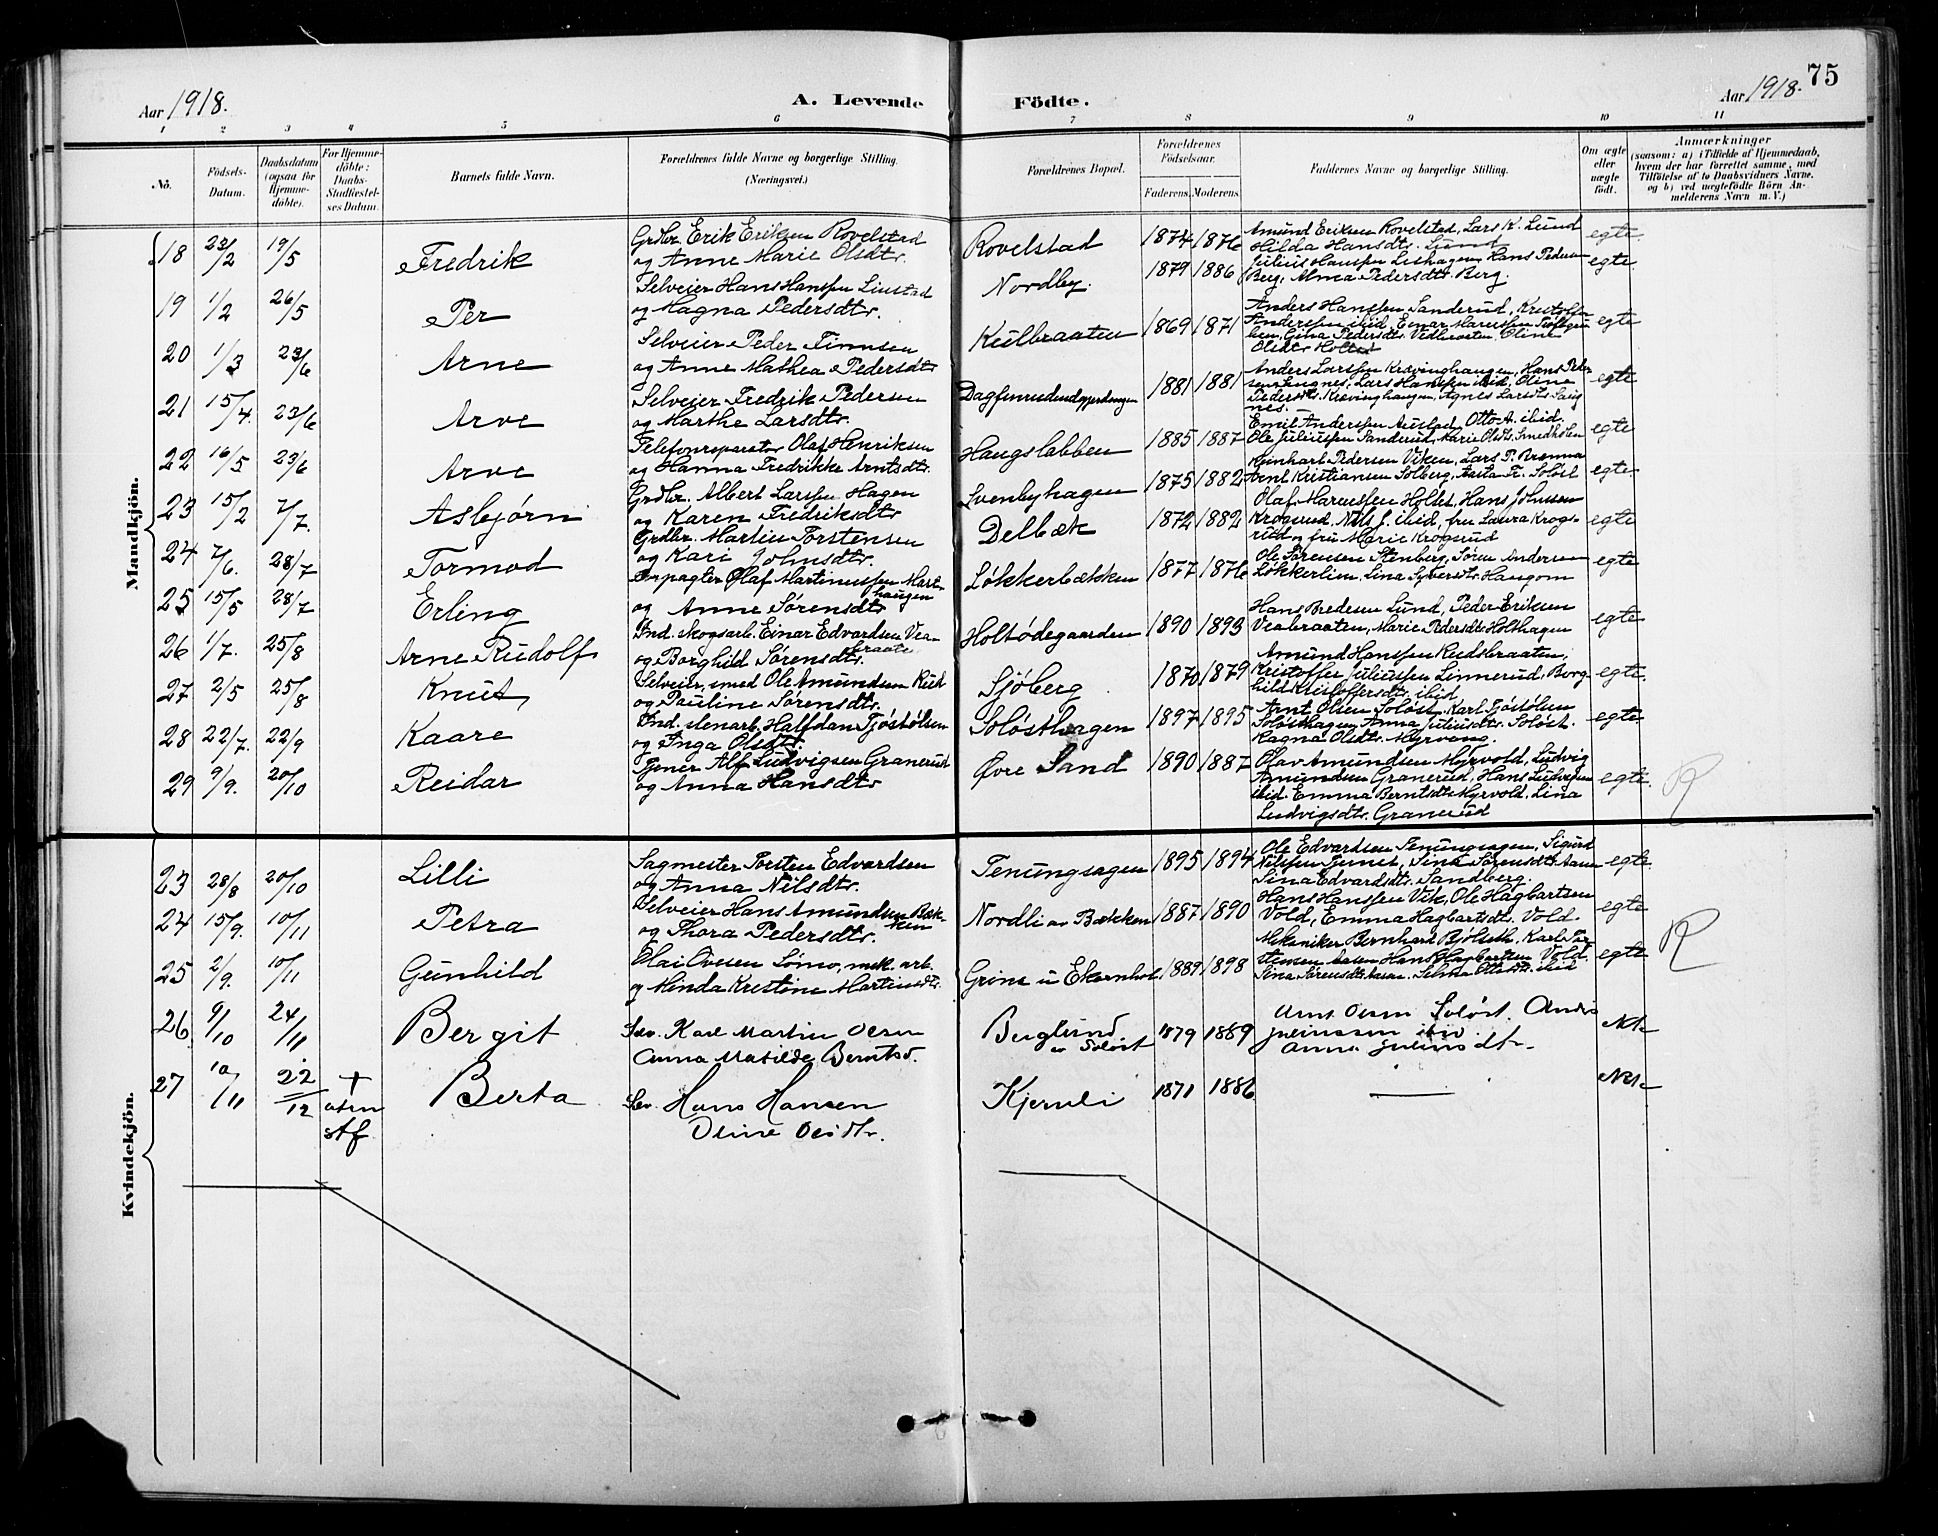 75
Aar 1918.
A. Levende Födte.
Aar 1918.
1 2 3 4 5 6 7 8 9 10 11
No.
Födsels-Datum.
Daabsdatum (ogsaa for Hjemme-döbte).
For Hjemme-döbte: Daabs-Stadfæstel-ses Datum.
Barnets fulde Navn.
Forældrenes fulde Navne og borgerlige Stilling. (Næringsvei.)
Forældrenes Bopæl.
Forældrenes Födselsaar.
Faderens. Moderens.
Faddernes Navne og borgerlige Stilling.
Om ægte eller uægte födt.
Anmærkninger
(saasom: a) i Tilfælde af Hjemmedaab, hvem der har forrettet samme, med Tilföielse af to Daabsvidners Navne, og b) ved uægtefödte Börn An-melderens Navn m. V.)
Mandkjön.
18 22/2 19/5 Fredrik Grdbr. Erik Eriksen Rovelstad og Anne Marie Olsdtr. Rovelstad 1874 1876 Amund Eriksen Rovelstad, Lars K. Lund Hilda Hansdtr. Lund egte
19 1/2 26/5 Per Selveier Hans Hanssen Linstad og Magna Pedersdtr. Nordby 1879 1886 Julius Hanssen Hans Pedersen Berg, Alma Pedersdtr. Berg. egte
20 1/3 23/6 Arne Selveier Peder Finnsen og Anne Mathea Pedersdtr Kulbraaten 1869 1871 Anders Hanssen Sanderud, Kristoffer Anderssen ibid, Einar Marussen Gina Pedersdtr. Vedbraaten, Oline Olsdtr Holtet egte
21 15/4. 23/6 Arve Selveier Fredrik Pedersen og Marthe Larsdtr. 1881 1881 Anders Larssen Kravinghaugen, Hans Pedersen Lars Hanssen ibid, Oline Pedersdtr. Kravinghaugen, Agnes Larsdtr. egte
22 16/5 23/6 Arve Telefonreparatør Olaf Henriksen og Hanna Fredrikke Arntsdtr. Haugslabben 1885 1887 Emil Anderssen Austad, Otto A. ibid. Ole Juliussen Sanderud, Marie Olsdtr. Smedholen egte
23 15/2 7/7. Asbjørn Grdbr. Albert Larssen Hagen og Karen Fredriksdtr Svenbyhagen 1875 1882 Reinhart Pedersen Viken, Lars P. Arnt Kristiansen Solberg, Aasta Fr. Soløst egte
24 7/6. 28/7 Tormod Grdbr. Martin Torstensen og Kari Johnsdtr. Delbæk 1872 1882 Olaf Marussen Holtet, Hans Johnssen Krogsrud, Nils J. ibid, fru Laura Krogsrud og fru Marie Krogsrud egte
25 15/5 28/7 Erling Forpagter Olaf Martinussen Marthaugen og Anne Sørensdtr Løkkerbækken 1877 1876 Ole Sørensen Stenberg, Søren Andersen Løkkerlien, Lina Syversdtr. Haugom egte
26 1/7. 25/8 Arne Rudolf Ind. skogsarb. Einar Edvardsen Veabraaten og Borghild Sørensdtr. Holtødegaarden 1890 1893 Hans Bredesen Lund, Peder Eriksen Veabraaten, Marie Pedersdtr Holthagen egte
27 2/5 25/8 Knut Selveier, smed Ole Amundsen og Pauline Sørensdtr. Sjøberg 1870 1879 Amund Hanssen Rudsbraaten, Kristoffer Juliussen Linnerud, Borghild Kristoffersdtr. ibid egte
28 22/7. 22/9 Kaare Ind. stenarb. Halfdan Tjøstølsen og Inga Olsdtr. Soløsthagen 1897 1895 Arnt Olsen Soløst, Karl Tjøstølsen Soløsthagen, Anna Juliusdtr. Soløst. Ragna Olsdtr. Myrvang. egte
29 9/9. 20/10 Reidar Alf Ludvigsen Granerud og Anna Hansdtr Øvre Sand 1890 1887 Olav Amundsen Myrvold, Ludvig Amundsen Granerud, Hans Ludvigsen ibid. Emma Berntsdtr. Myrvold, Lina Ludvigsdtr. Granerud egte. R
Kvindekjön.
23 28/8 20/10 Lilli Sagmester Torsten Edvardsen og Anna Nilsdtr. Tenungsagen 1895 1894 Ole Edvardsen Tenungsagen, Sigurd Nilssen Sina Sørensdtr. Aasen Sina Edvardsdtr. Sandberg. egte
24 15/9. 10/11 Petra Selveier Hans Amundsen Bækken og Thora Pedersdtr. Nordli av Bækken 1887 1890 Hans Hanssen Vik, Ole Hagbartsen Vold, Emma Hagbartsdtr. Vold. egte R
25 2/9. 10/11 Gunhild Olai Ovesen mek. arb. og Minda Kristine Martinsdtr. 1889 1898 Mekaniker Bernhard Bjølseth, Karl Torstensen Aasen Hans Hagbartsen Vold, Sina Sørensdtr. Aasen. Selma Ottesdtr. ibid egte
26 9/10 24/11 Bergit Sev. Karl Martin Olsen Anna Matilde Berntsd. Berglund av Soløst 1879 1889 Arnt Olsen Soløst, Anders Juliussen ibid. Anna Juliusdtr. ekte
27 10/11 22/12 + uten stf Berta Sev. Hans Hansen Oline Olsdtr. Kjernli 1871 1886 — ekte